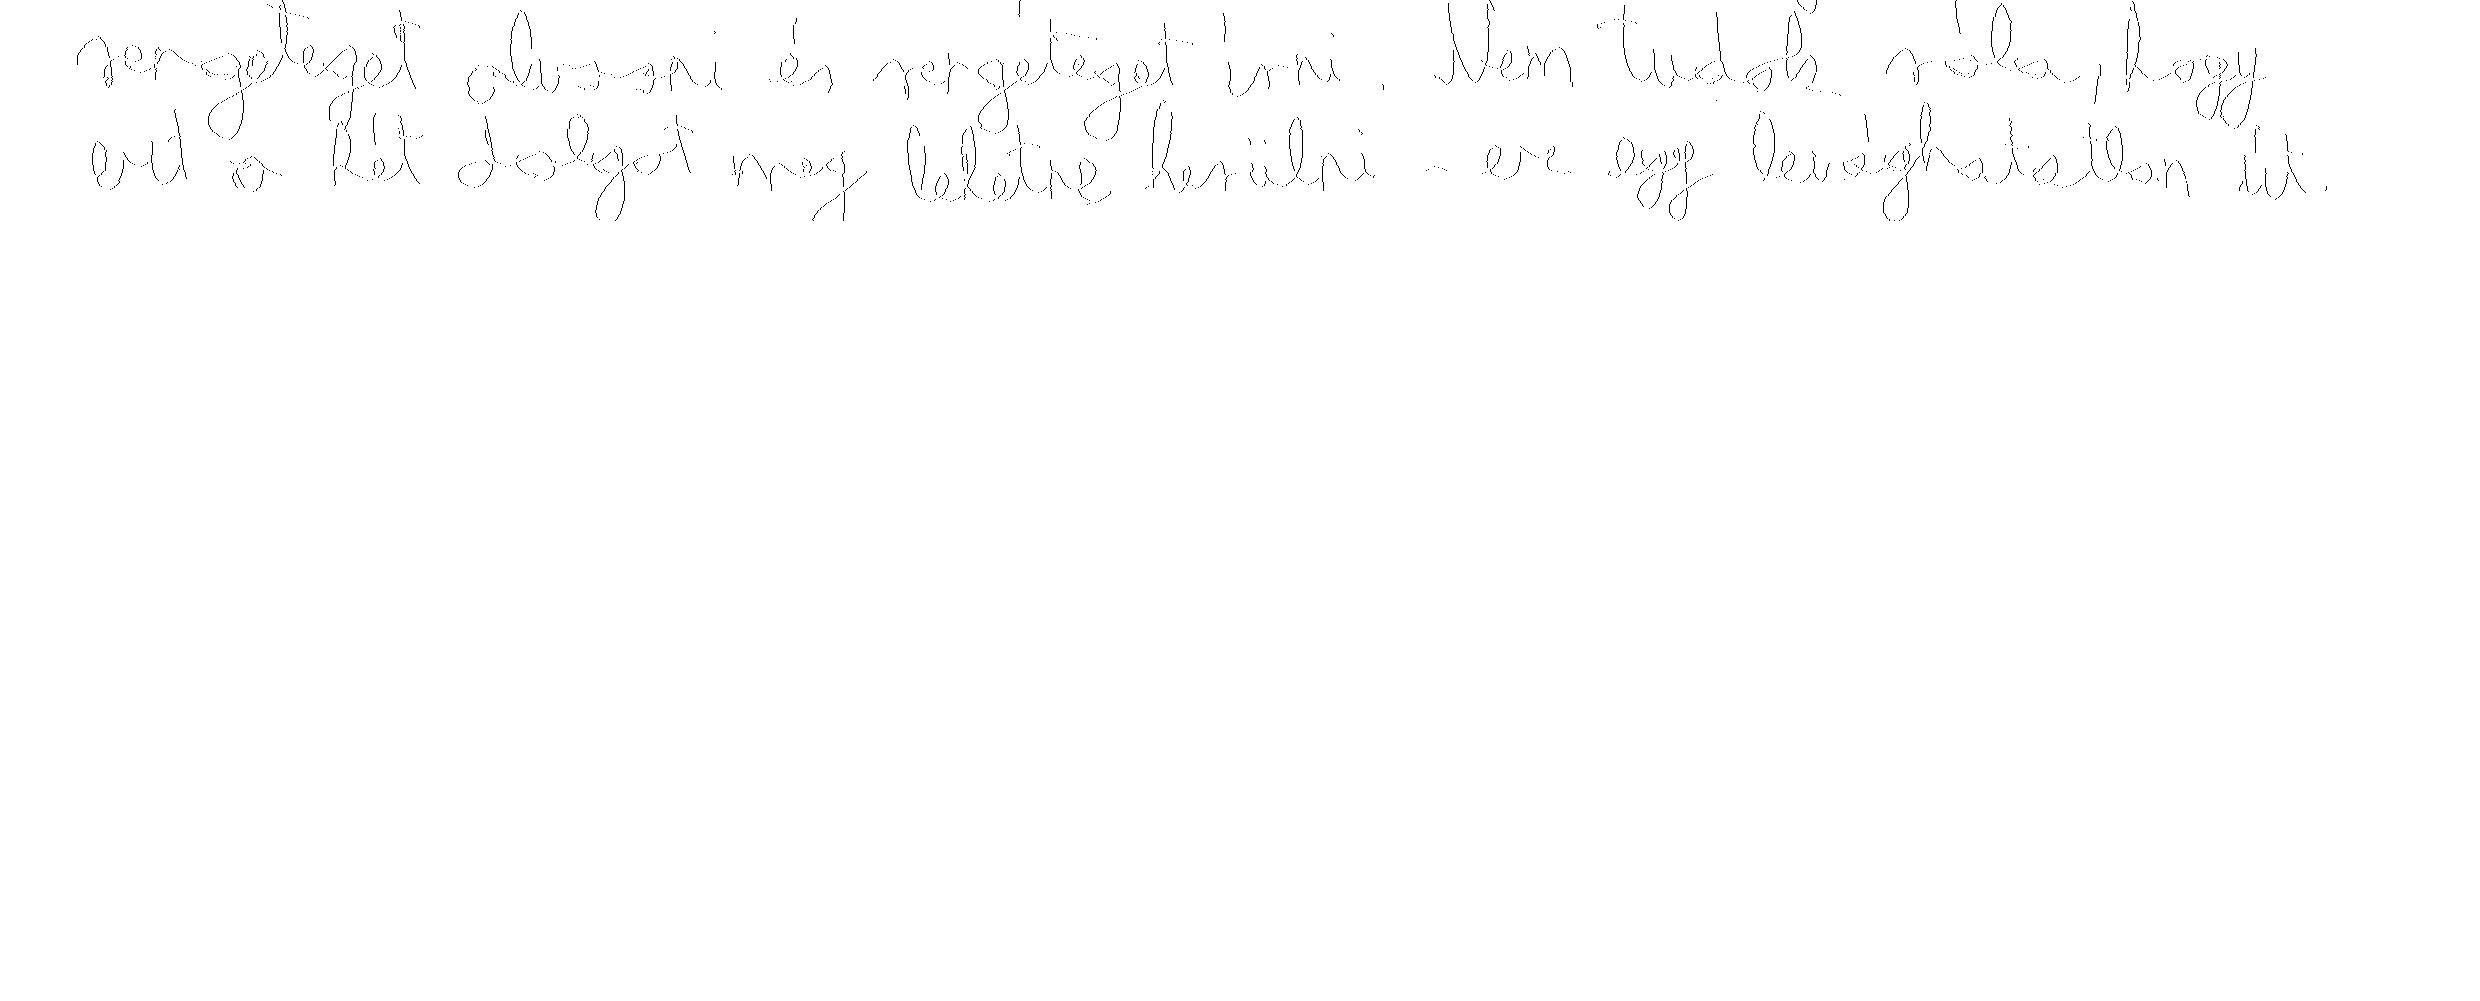 rengeteget olvasni és rengeteget írni. Nem tudok róla, hogy
ezt a két dolgot meg lehetne kerülni - ez egy levághatatlan út.